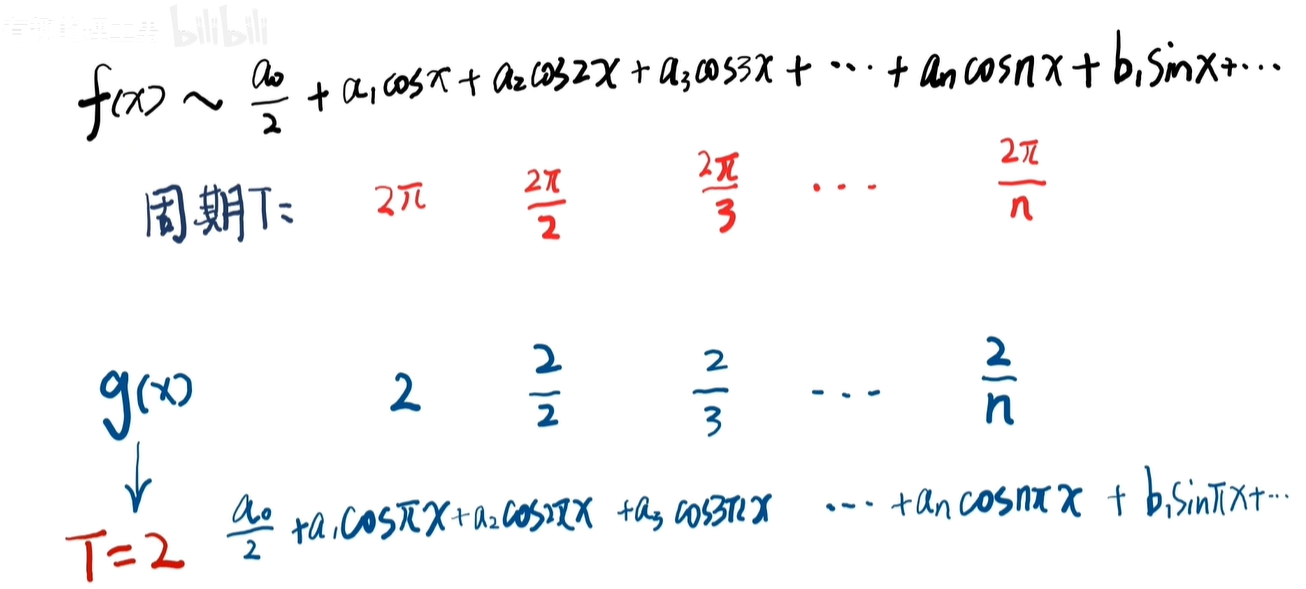 bilibili
f(x) ~ a₀/2 + a₁cosx + a₂cos2x + a₃cos3x + ··· + aₙcosnx + b₁sinx+···
周期T: 2π 2π/2 2π/3 ··· 2π/n
g(x) 2 2/2 2/3 ··· 2/n
↓
T=2 a₀/2 +a₁cosπx+a₂cos2πx +a₃cos3πx ··· +aₙcosnπx + b₁sinπx+···